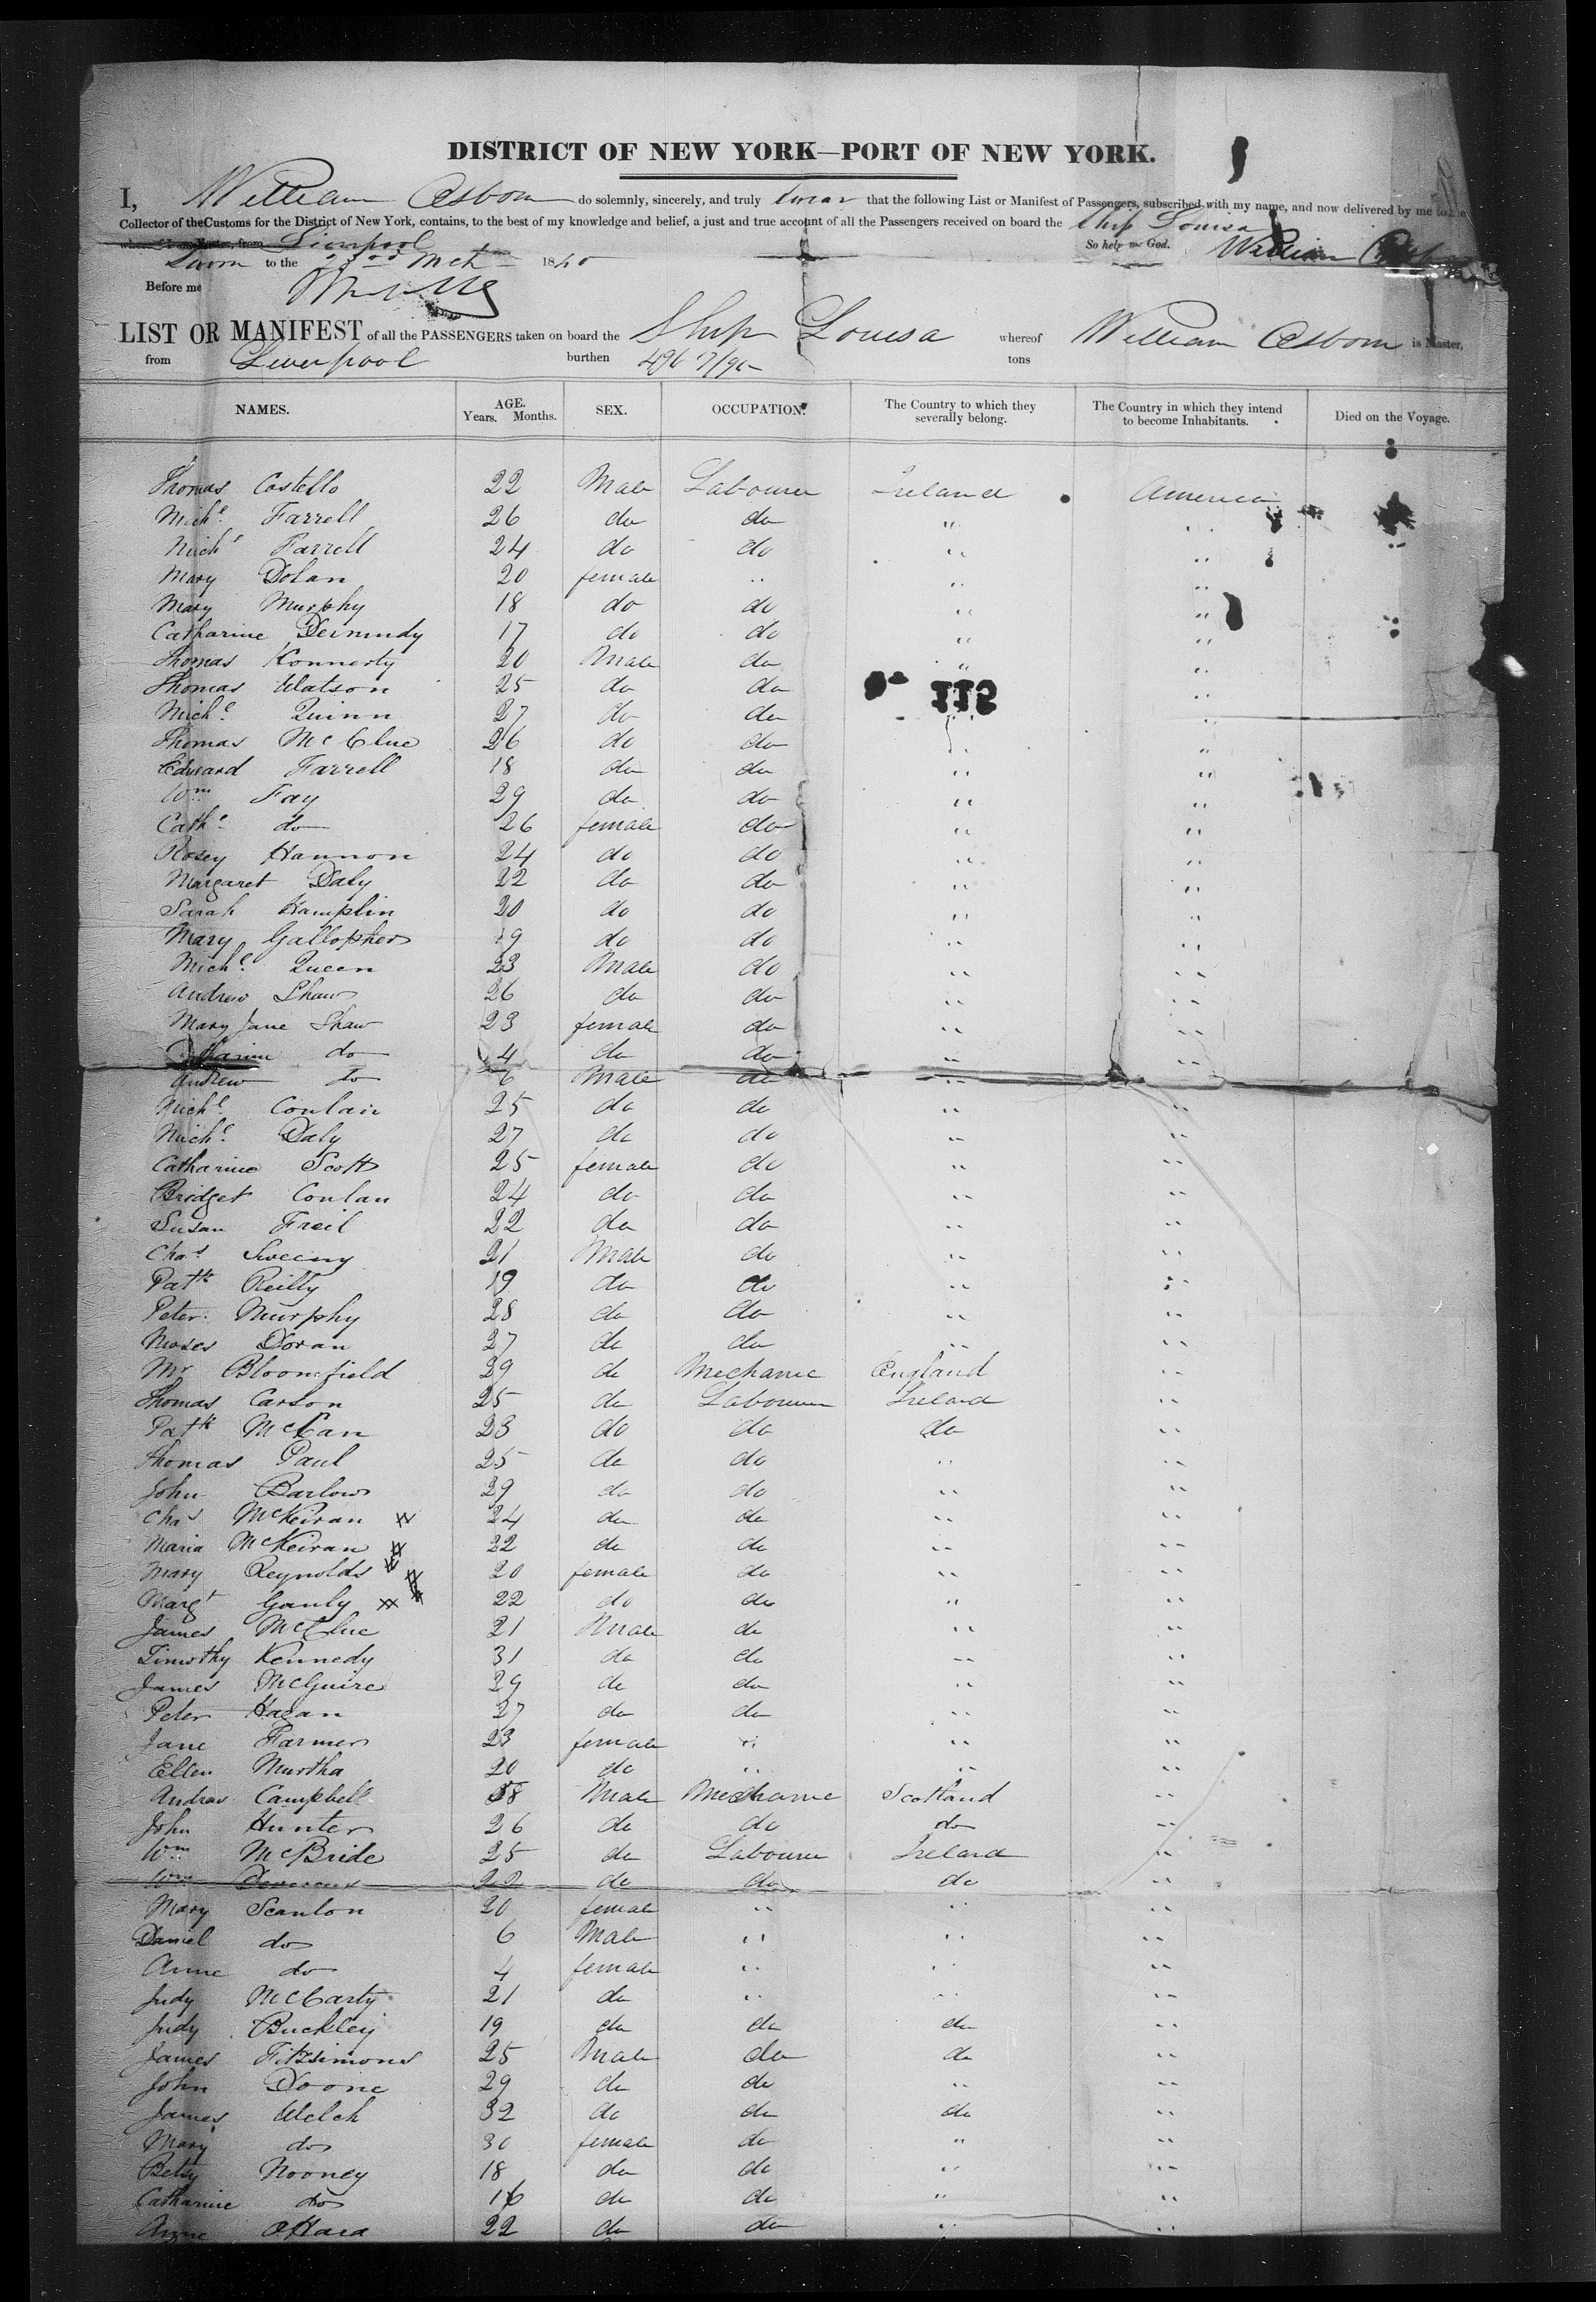 DISTRICT OF NEW YORK—PORT OF NEW YORK.
I, William Osborn do solemnly, sincerely, and truly swear that the following List or Manifest of Passengers, subscribed with my name, and now delivered by me to the
Collector of the Customs for the District of New York, contains, to the best of my knowledge and belief, a just and true account of all the Passengers received on board the Ship Louisa
from Liverpool So help me God. William
Sworn to the 1840
Before me
LIST OR MANIFEST of all the PASSENGERS taken on board the Ship Louisa whereof William Osborn is Master,
from Liverpool burthen 496 tons
NAMES. AGE. Years. Months. SEX. OCCUPATION. The Country to which they severally belong. The Country in which they intend to become Inhabitants. Died on the Voyage.
Thomas Costello 22 Male Labourer Ireland America
Michl. Farrell 26 do do " "
Michl Farrell 24 do do " "
Mary Dolan 20 female " " "
Mary Murphy 18 do do " "
Catharine Dermudy 17 do do " "
Thomas Konnerty 20 Male do " "
Thomas Watson 25 do do "
115
Michl. Quinn 27 do do " "
Thomas McClue 26 do do " "
Edward Farrell 18 do do " "
Wm Fay 29 do do " "
Cathe. do 26 female do " "
Rosey Hannon 24 do do " "
Margaret Daly 22 do do " "
Sarah Hamplin 20 do do " "
Mary Gallopher 19 do do " "
Michl. Queen 23 Male do " "
Andrew Shaw 26 do do " "
Mary Jane Shaw 23 female do " "
do 4 do do " "
Andrew do 6 Male do " "
Michl. Conlan 25 do do " "
Michl. Daly 27 do do " "
Catharine Scott 25 female do " "
Bridget Conlan 24 do do " "
Susan Freil 22 do do " "
Chas Sweeny 21 Male do " "
Patk Reilly 19 do do " "
Peter Murphy 28 do do " "
Moses Doran 27 do do " "
Mr Bloomfield 29 do Mechanic England "
Thomas Carson 25 do Labourer Ireland "
Patk McCan 23 do do do "
Thomas Paul 25 do do " "
John Barlow 29 do do " "
Chas McKeiran 24 do do " "
Maria McKeiran 22 do do " "
Mary Reynolds 20 female do " "
Margt Ganly 22 do do " "
James McClue 21 Male do " "
Timothy Kennedy 31 do do " "
James McGuire 29 do do " "
Peter Hagan 27 do do " "
Jane Farmer 23 female " " "
Ellen Murtha 20 do " " "
Andrew Campbell 18 Male Mechanic Scotland "
John Hunter 26 do do do "
Wm McBride 25 do Labourer Ireland "
Wm 22 do do do "
Mary Scanlon 20 female " " "
Daniel do 6 Male " " "
Anne do 4 female " " "
Judy McCarty 21 do " " "
Judy Buckley 19 do do do "
James Fitzsimons 25 Male do do "
John Doone 29 do do " "
James Welch 32 do do do "
Mary do 30 female do " "
Betsy Nooney 18 do do " "
Catharine do 16 do do " "
Anne O'Hara 22 do do " "